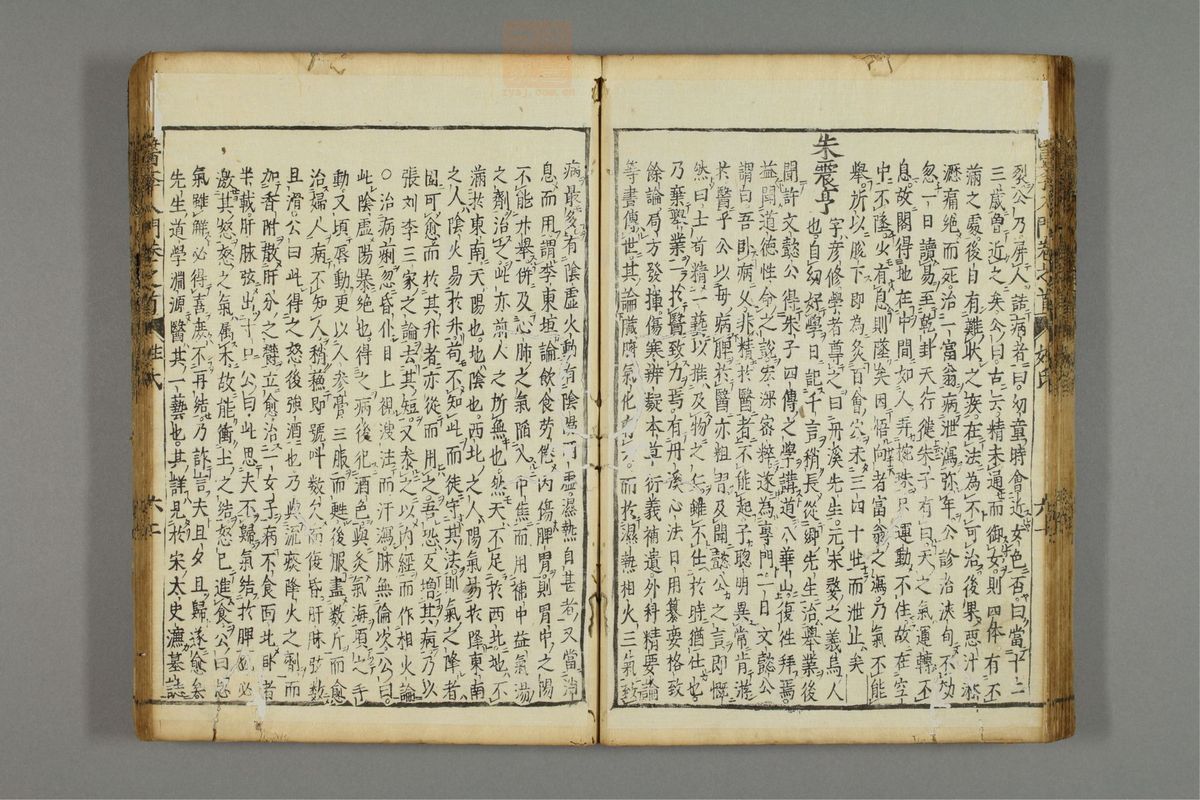 裂公乃屏人詰病者曰幼童時曾近女色否曰當十二
三歲曾近之矣公曰古云精未通而御女則四体有不
滿之處後日有難狀之疾在法為不可治後果惡汁淋
瀝痛絕而死治一富翁病泄瀉弥年公診治浹旬不効
忽一日讀易至乾卦天行健朱子有曰天之氣運轉不
息故閣得地在中間如人弄椀珠只運動不住故在空
中不墜火有息則墜矣因悟向者富翁之瀉乃氣不能
舉所以脱下即為灸百會穴未三四十壯而泄止矣
朱震亨
字彦修學者尊之曰丹溪先生元末婺之義烏人
也自幼好學日記千言稍長從鄉先生治舉業後
聞許文懿公得朱子四傳之學講道八華山復徃拜焉
益聞道德性命之說宏深密粹遂為專門一日文懿公
謂曰吾卧病久非精於醫者不能起子聰明異常肯遊
於醫乎公以母病脾於醫亦粗習及聞懿公之言即慨
然曰士苟精一藝以推及物之仁雖不仕於時猶仕也
乃棄舉業一於醫致力焉有丹溪心法日用纂要格致
餘論局方發揮傷寒辨疑本草衍義補遺外科精要論
等書傳世其論臟腑氣化有六而於濕熱相火三氣致
病最多有陰虛火動有陰陽兩虛濕熱自甚者又當消
息而用謂李東垣論飲食勞倦内傷脾胃則胃中之陽
不能升舉併及心肺之氣陷入中焦而用補中益氣湯
之劑治之此亦前人之所無也然天不足於西北地不
滿於東南天陽也地陰也西北之人陽氣易於降東南
之人陰火易於升苟不知此而徒守其法則氣之降者
固可愈而於其升者亦從而用之吾恐反增其病乃以
張刘李三家之論去其短又參之以内經而作相火論
○治病痢忽昏仆目上視溲注而汗瀉脉無倫次公曰
此陰虛陽暴絕也得之病後犯酒色與灸氣海頃之手
動又頃唇動更以人參膏三服而甦後服盡數斤而愈
治婦人病不知人稍蘇即號叫數次而復昏肝脉弦數
且滑公曰此得之怒後強酒也乃與流痰降火之劑而
加香附散肝分之欝立愈治一女子病不食面北卧者
半載肝脉弦出寸口公曰此思夫不歸氣結於脾也必
激其怒怒之氣屬木故能衝土之結怒已進食公曰思
氣雖解必得喜庶不再結乃詐言夫且夕且歸遂愈矣
先生道學淵源醫其一藝也其詳見於宋太史濂墓誌